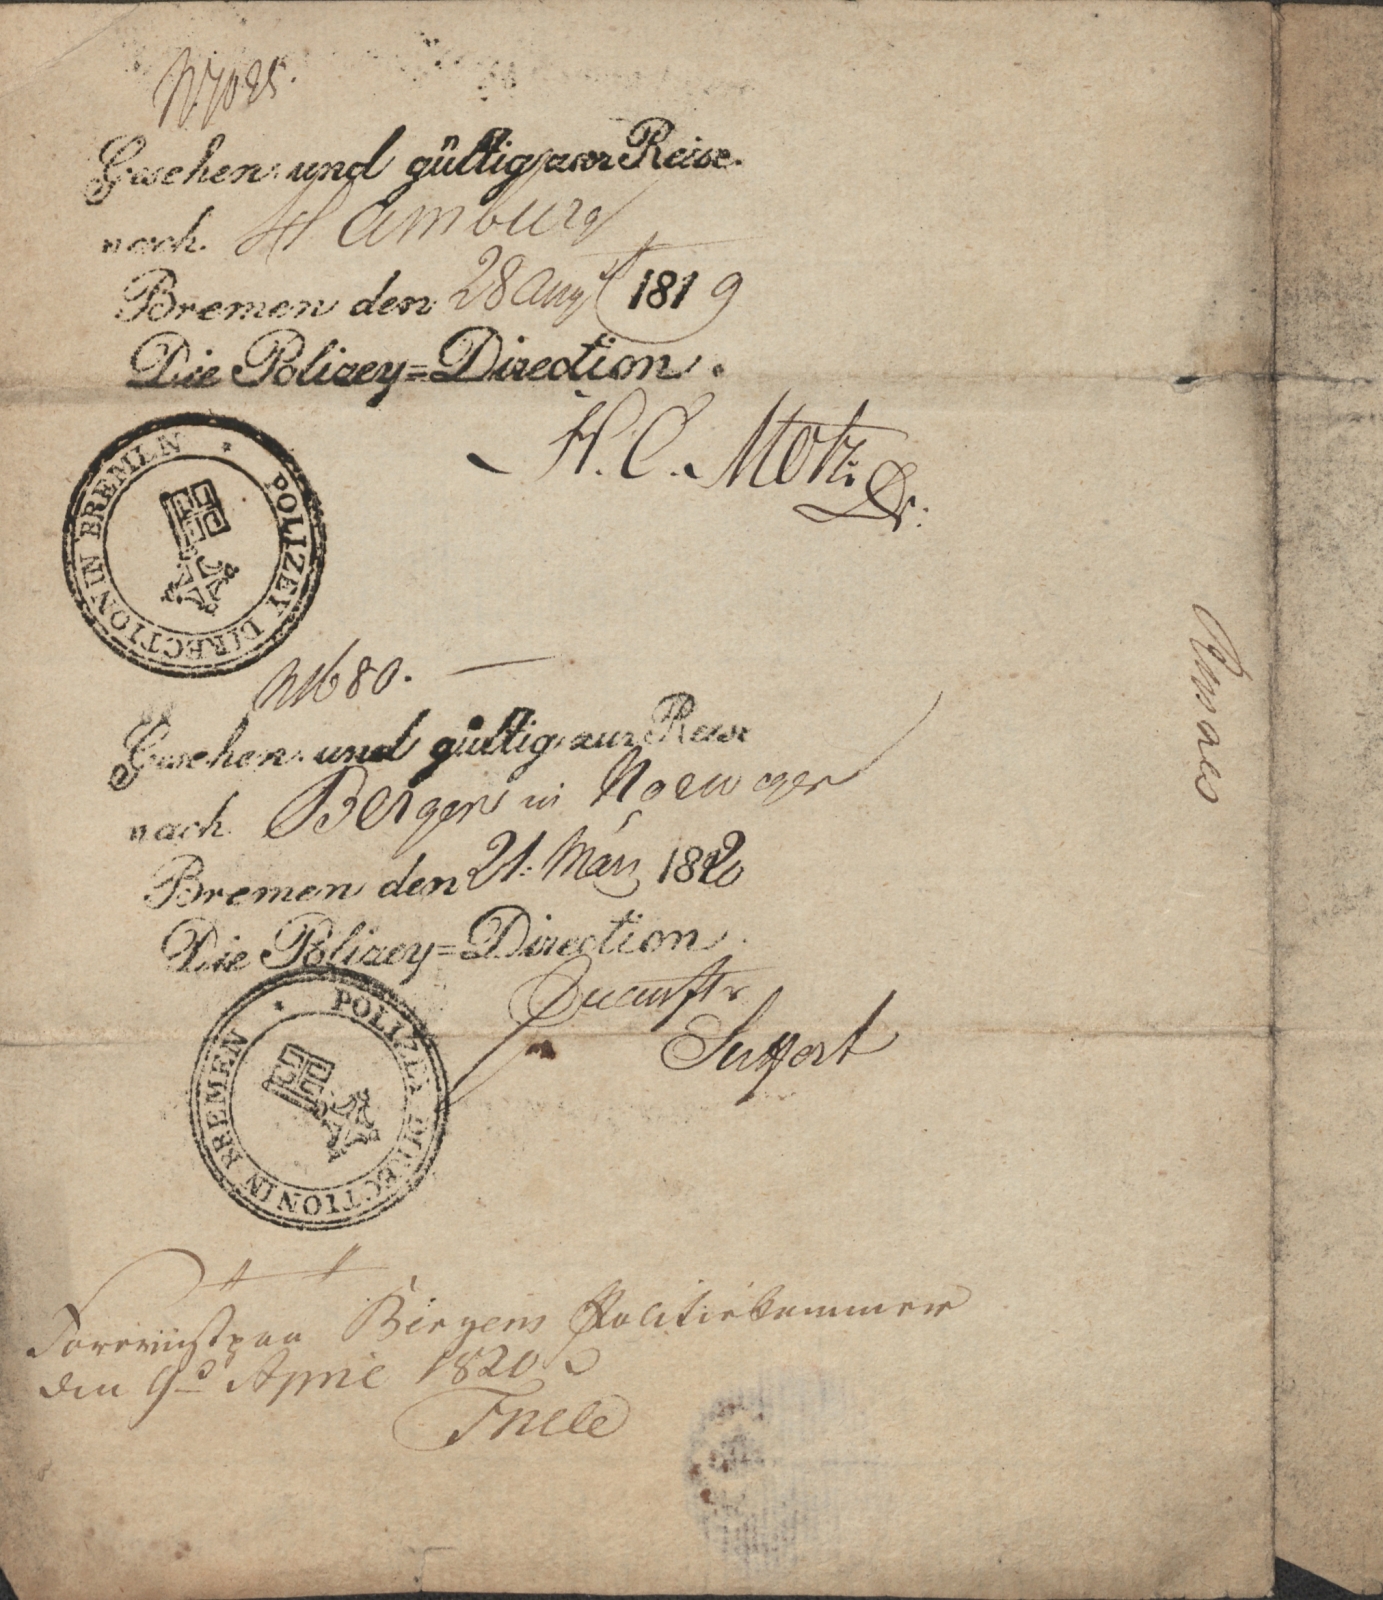 N 7025.
Gesehen und gültig zur Reise
nach Hamburg
Bremen den 28 Augst 1819
Die Polizey=Direction.
H. C. Motz Dr.
POLIZEY DIRECTION IN BREMEN *
N 1680.
Gesehen und gültig zur Reise
nach Bergen in Norweger
Bremen den 21. März 1820
Die Polizey=Direction.
POLIZEY DIRECTION IN BREMEN *
Foreviist paa Bergens Politiekammer
den 9d April 1820